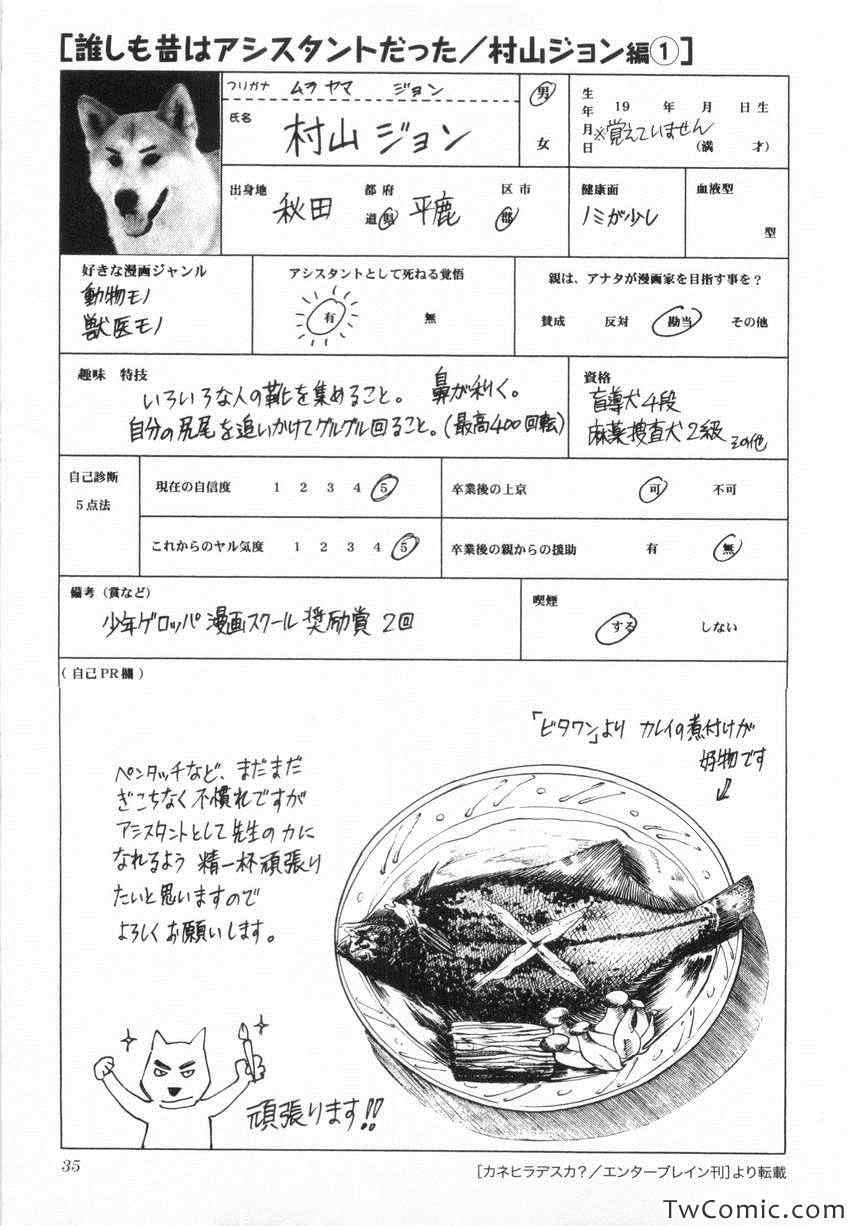 [誰しも昔はアシスタントだった／村山ジョン編①]
フリガナ ムラヤマ ジョン
氏名 村山 ジョン
男
女
生年月日 19 年 月 日生
※覚えていません
(満 才)
出身地 秋田 都府道県 平鹿 区市郡
健康面
ノミが少し
血液型
型
好きな漫画ジャンル
動物モノ
獣医モノ
アシスタントとして死ねる覚悟
有 無
親は、アナタが漫画家を目指す事を?
賛成 反対 勘当 その他
趣味 特技
いろいろな人の靴を集めること。 鼻が利く。
自分の尻尾を追いかけてグルグル回ること。(最高400回転)
資格
盲導犬4段
麻薬捜査犬2級 その他
自己診断
5点法
現在の自信度 1 2 3 4 5
卒業後の上京 可 不可
これからのヤル気度 1 2 3 4 5
卒業後の親からの援助 有 無
備考(賞など)
少年ゲロッパ漫画スクール 奨励賞 2回
喫煙
する しない
(自己PR欄)
「ビタワン」より カレイの煮付けが
好物です
ペンタッチなど、まだまだ
ぎこちなく不慣れですが
アシスタントとして先生の力に
なれるよう 精一杯頑張り
たいと思いますので
よろしくお願いします。
頑張ります!!
35
[カネヒラデスカ?／エンターブレイン刊]より転載
TwComic.com